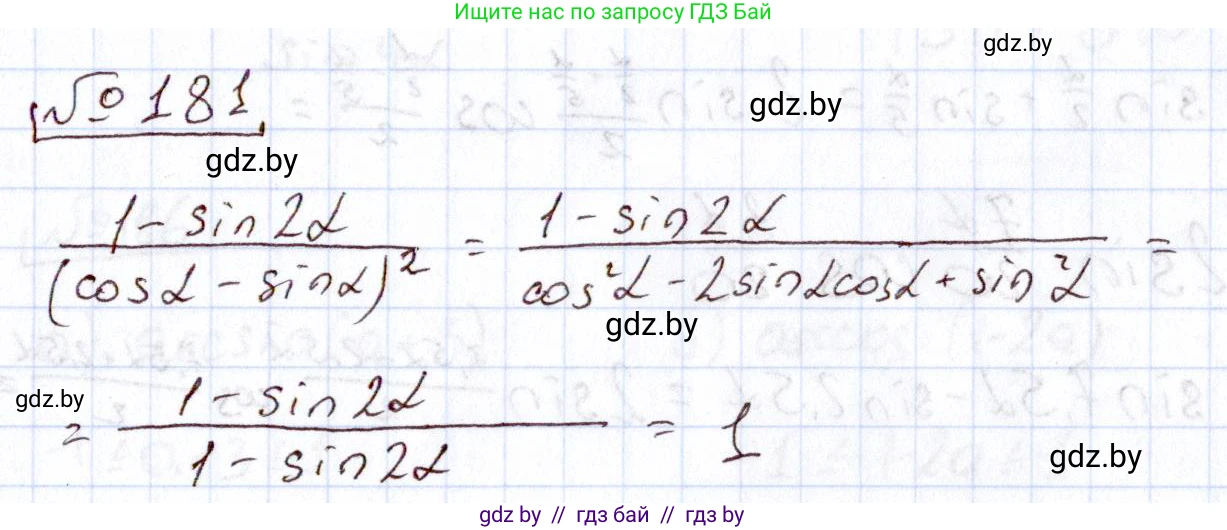 Ищите нас по запросу ГДЗ Бай
gdz.by
№181
gdz.by
gdz.by
(1 - sin2α)/(cosα - sinα)² = (1 - sin2α)/(cos²α - 2sinαcosα + sin²α) =
gdz.by
gdz.by
= (1 - sin2α)/(1 - sin2α) = 1
gdz.by
gdz.by // гдз бай // gdz.by